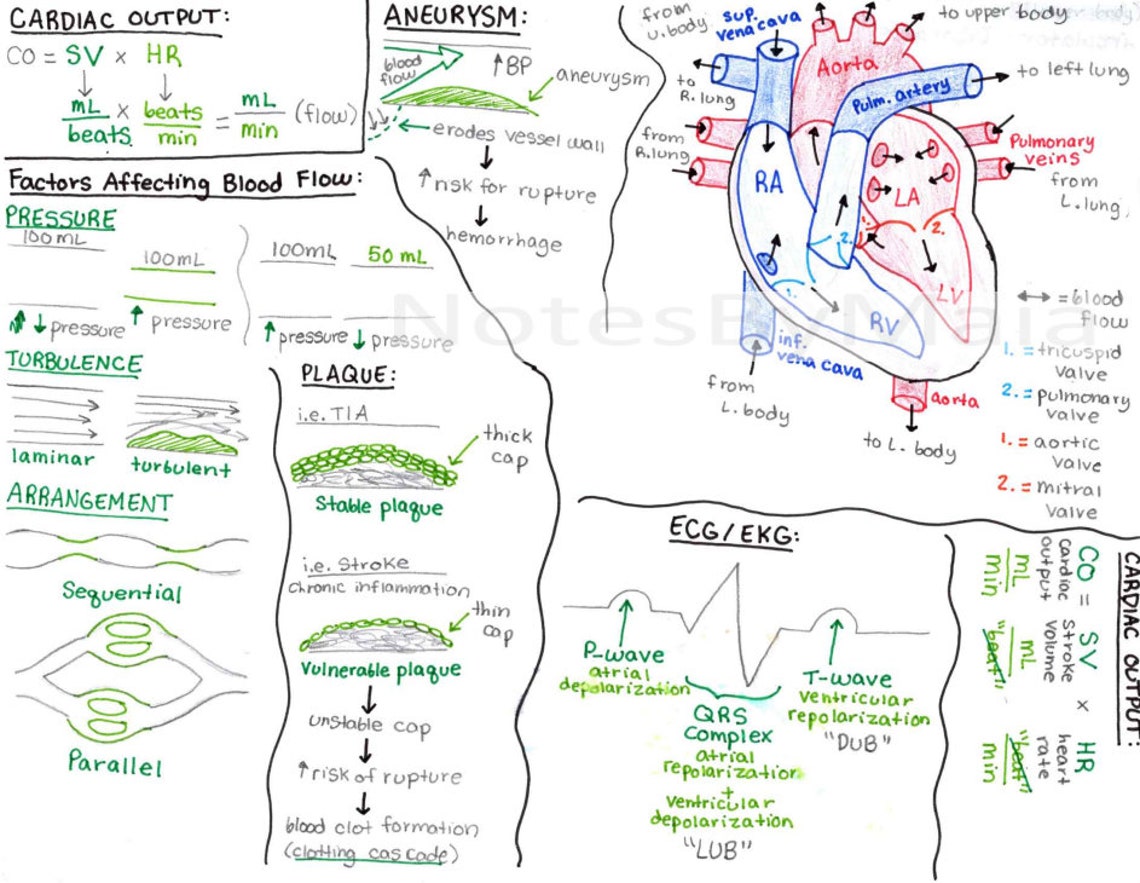 CARDIAC OUTPUT:
CO = SV x HR
mL x beats = mL (flow)
beats min min
ANEURYSM:
blood flow
↑BP
aneurysm
erodes vessel wall
↑risk for rupture
hemorrhage
from
U. body
sup.
vena cava
to upper body
to
R. lung
Aorta
Pulm. artery
to left lung
from
R. lung
Pulmonary
veins
from
L. lung
RA
LA
1.
2.
2.
1.
LV
RV
inf.
vena cava
from
L. body
aorta
to L. body
↔ = blood
flow
1. = tricuspid
valve
2. = pulmonary
valve
1. = aortic
valve
2. = mitral
valve
NotesByMaia
Factors Affecting Blood Flow:
PRESSURE
100mL
100mL
↓ pressure
↑ pressure
100mL
50 mL
↑ pressure
↓ pressure
TURBULENCE
laminar
turbulent
ARRANGEMENT
Sequential
Parallel
PLAQUE:
i.e. TIA
thick
cap
Stable plaque
i.e. Stroke
chronic inflammation
thin
cap
Vulnerable plaque
unstable cap
↑ risk of rupture
blood clot formation
(clotting cascade)
ECG/EKG:
P-wave
atrial
depolarization
QRS
Complex
atrial
repolarization
+
ventricular
depolarization
"LUB"
T-wave
ventricular
repolarization
"DUB"
CARDIAC OUTPUT:
CO = SV x HR
cardiac output
stroke volume
heart rate
mL mL "beat"
min "beat" min